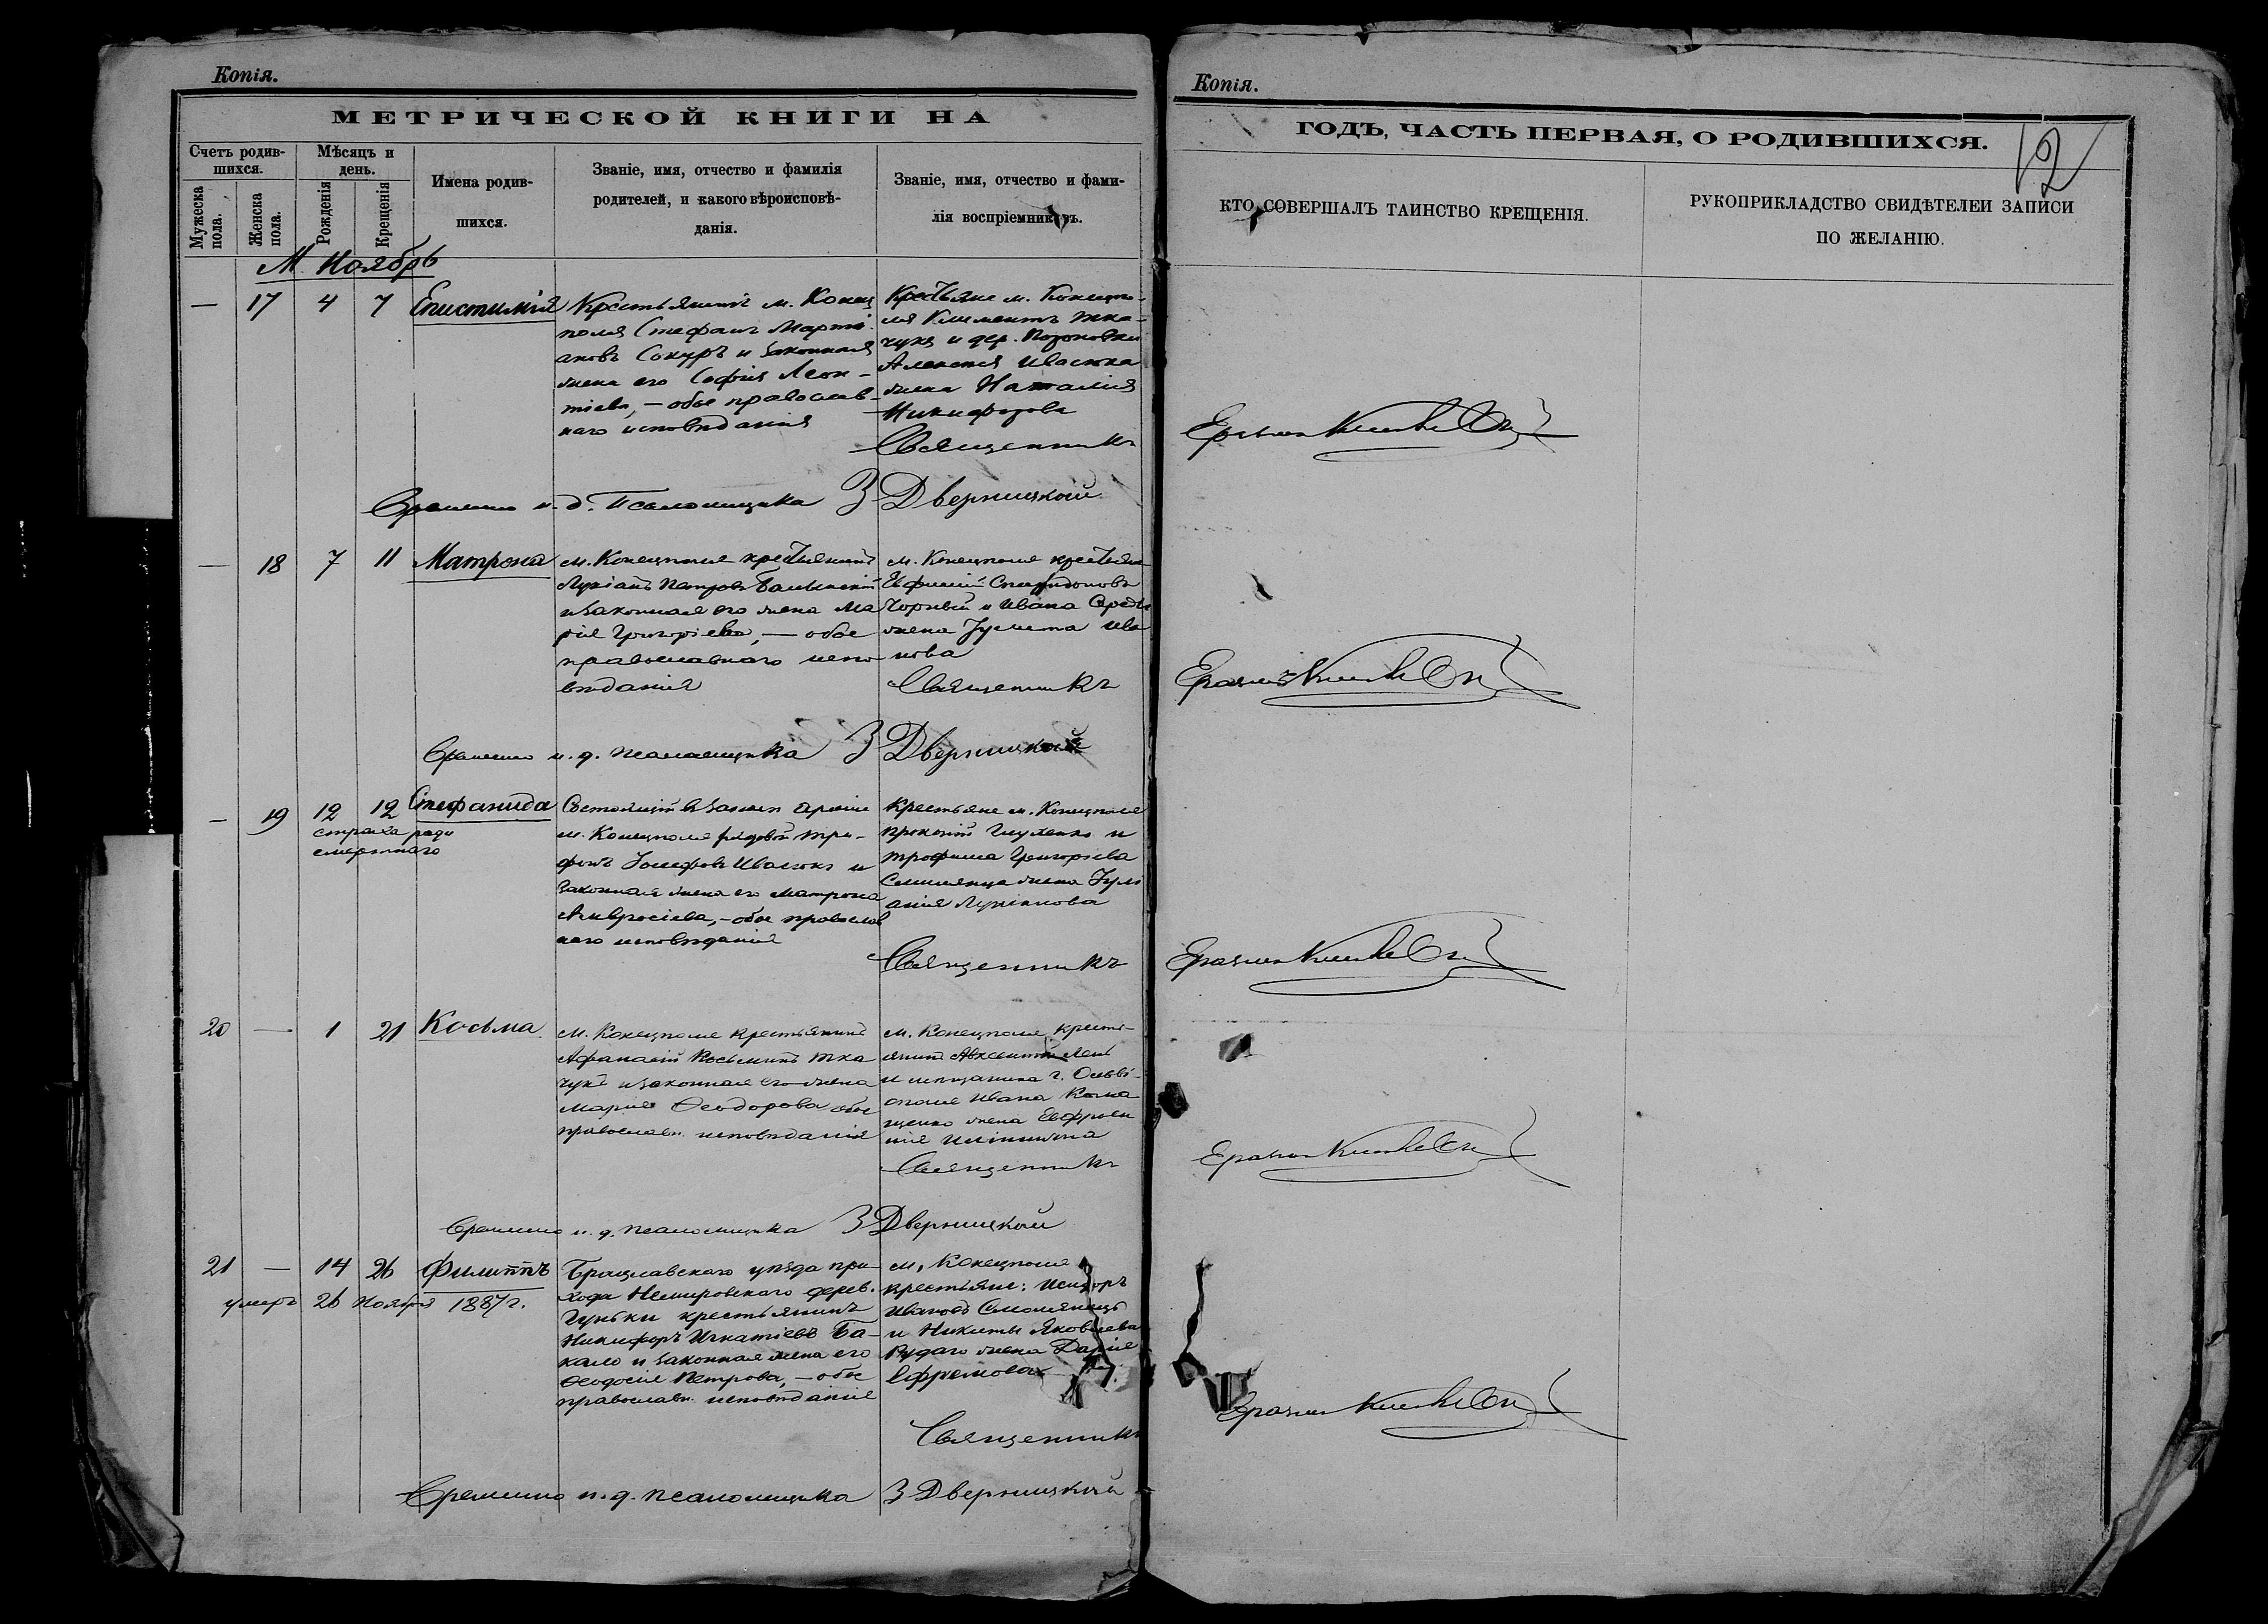 Копія.
МЕТРИЧЕСКОЙ КНИГИ НА
Счетъ родив-
шихся.
Мѣсяцъ и
день.
Мужеска
пола.
Женска
пола.
Рожденія
Крещенія
Имена родив-
шихся.
Званіе, имя, отчество и фамилія
родителей, и какого вѣроисповѣ-
данія.
Званіе, имя, отчество и фами-
лія воспріемниковъ.
М. Ноябрь
— 17 4 7 Епистимія
Крестьянинъ м. Конец
поля Стефанъ Марти
ановъ Сокуръ и законная
жена его Софія Леон-
тіева, — обое православ-
наго исповѣданія
Крестьяне м. Конецпо-
ля Климентъ Тка-
чукъ и дер.
Алексѣя Ивасюка
жена Наталія
Никифорова
Священникъ
Временно и. д. Псаломщика З Дверницкій
— 18 7 11 Матрона
м. Конецполя крестьянинъ
Лукіанъ Петровъ
и законная его жена Ма
рія Григоріева, — обое
православнаго испо
вѣданія
м. Конецполя крестьяне
Евфимій Спиридоновъ
Чорный и Ивана
жена Іулита Ива
нова
Священникъ
Временно и. д. псаломщика З Дверницкій
— 19 12 12 Стефанида
страха ради
смертнаго
Состоящій въ запасѣ арміи
м. Конецполя рядовой Три-
фонъ Іосифовъ Ивасюкъ и
законная жена его Матрона
Амвросіева, — обое православ
наго исповѣданія
Крестьяне м. Конецполя
Прокопій Глуханько и
Трофима Григорьева
жена Іулі
анія Лукіанова
Священникъ
20 — 1 21 Косьма
м. Конецполя крестьянинъ
Афанасій Косьминъ Тка
чукъ и законная его жена
Марія Ѳеодорова обое
православн. исповѣданія
м. Конецполя кресть-
янинъ Авксентій
и мѣщанина г. Ольві-
ополя Ивана
жена Евфроси
нія
Священникъ
Временно и. д. псаломщика З Дверницкій
21 — 14 26 Филиппъ
умеръ 26 Ноября 1887 г.
Брацлавскаго уѣзда при-
хода Немировскаго дерев.
крестьянинъ
Никифоръ Игнатіевъ Ба-
кало и законная жена его
Ѳеодосія Петрова, — обое
православн. исповѣданія
м. Конецполя
крестьяне: Исидоръ
Ивановъ Смолянецъ
и Никиты Яковлева
Рудаго жена Дарія
Ефремова
Священникъ
Временно и. д. псаломщика З Дверницкій
Копія.
ГОДЪ, ЧАСТЬ ПЕРВАЯ, О РОДИВШИХСЯ.
12
КТО СОВЕРШАЛЪ ТАИНСТВО КРЕЩЕНІЯ.
РУКОПРИКЛАДСТВО СВИДѢТЕЛЕЙ ЗАПИСИ
ПО ЖЕЛАНІЮ.